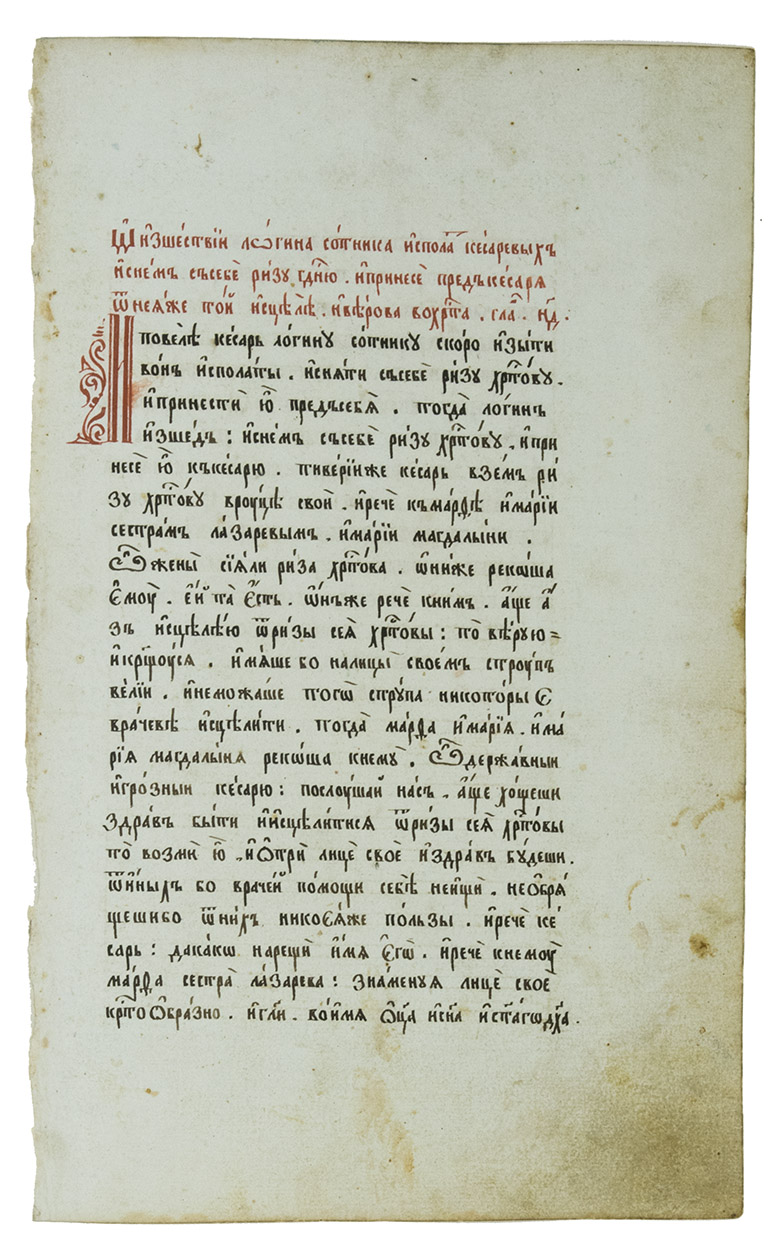 Ѿ и҆зше́ствїи ло́гина со́тника и҆спола́т кеса́ревыхъ
и҆сне́мъ съсебѐ ри́зꙋ гдⷭ҇ню . и҆принесѐ предъке́саря
ѿнеѧ́же то́й и҆сцелѣ̀ . и҆вѣ́рова вохрⷭ҇та̀ . гла҃ . н҃д .
И повелѣ̀ ке́сарь ло́гинꙋ со́тникꙋ ско́ро и҆зы́ти
во́нъ и҆спола́ты . и҆снѧ́ти съсебѐ ри́зꙋ хрⷭ҇то́вꙋ .
и҆принестѝ ю҆̀ предъсебѧ̀ . тогда̀ ло́гинъ
и҆зше́дъ : и҆сне́мъ съсебѐ ри́зꙋ хрⷭ҇то́вꙋ . и҆при
несѐ ю҆̀ къке́сарю . тиверїи́же ке́сарь взе́мъ ри́
зꙋ хрⷭ҇то́вꙋ врꙋ́цѣ своѝ . и҆речѐ къма́рѳѣ и҆марі́и
сестра́мъ ла́заревымъ . и҆марі́и магдалы́ни .
Ѽжены̀ сїѧ́ли ри́за хрⷭ҇то́ва . ѡ҆ни́же реко́ша
є҆моꙋ̀ . є҆́й та̀ є҆́сть . ѡ҆́нъже речѐ кни́мъ . а҆́ще а҆́
зъ и҆сцелѣ́ю ѿри́зы сеѧ̀ хрⷭ҇то́вы : то̀ вѣ́рꙋю =
и҆крⷭ҇щоуся . и҆мѧ́ше бо налицы̀ свое́мъ строꙋ́пъ
ве́лїи . и҆немо́жаше тогѡ̀ стрꙋ́па никото́ры є
враче́вѣ и҆сцѣли́ти . тогда̀ ма́рѳа и҆марі́ѧ . и҆ма
рі́ѧ магдалы́ня реко́ша кнемꙋ̀ . Ѽдержа́вныи
и҆гро́зныи ке́сарю : послоꙋ́шай на́съ . а҆́ще хо́щеши
здра́въ бы́ти и҆и҆сцѣли́тисѧ ѿри́зы сеѧ̀ хрⷭ҇то́вы
то̀ возмѝ ю҆̀ . и҆ѻ҆трѝ лицѐ своѐ и҆здра́въ бꙋ́деши .
ѿи҆ны́хъ бо враче́й по́мощи себѣ̀ неищѝ . не ѻ҆брѧ́
щешибо ѿни́хъ никоеѧ́же по́льзы . и҆речѐ ке́
сарь : дака́кѡ нарещѝ и҆́мѧ є҆гѡ̀ . и҆речѐ кнемоꙋ̀
ма́рѳа сестра̀ ла́зарева : зна́менꙋя лицѐ своѐ
крⷭ҇тоѻ҆бра́зно . и҆гл҃и . вои҆́мѧ ѻ҆ц҃а̀ и҆сн҃а и҆ст҃а́гѡдх҃а .